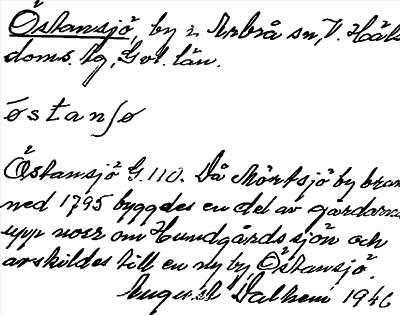 Östansjö, by i Arbrå sn, V. Häls
doms. tg, Gvl. län.
östanʃø
Östansjö G.110. Då Mörtsjö by bran
ned 1795 byggdes en del av gårdarna
upp norr om Hundgårdssjön och
avskildes till en ny by, Östansjö.
August Dalhem 1946